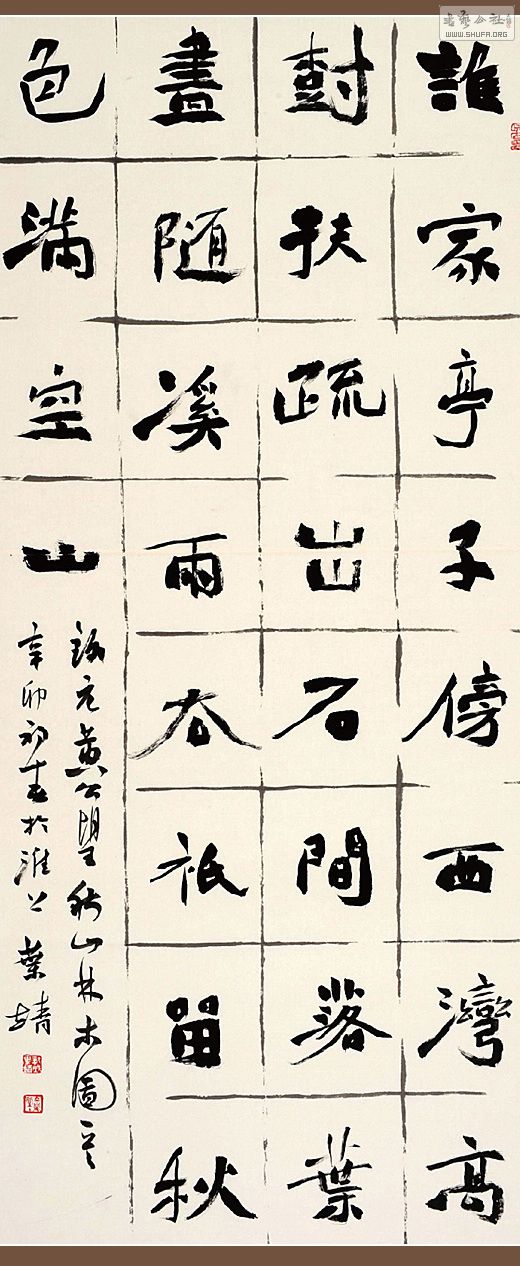 誰家亭子傍西灣高
樹扶疏出石間落葉
盡隨溪雨去祇留秋
色滿空山
錄元黃公望秋山林木圖
辛卯初春於淮上 葉靖
書藝公社
WWW.SHUFA.ORG